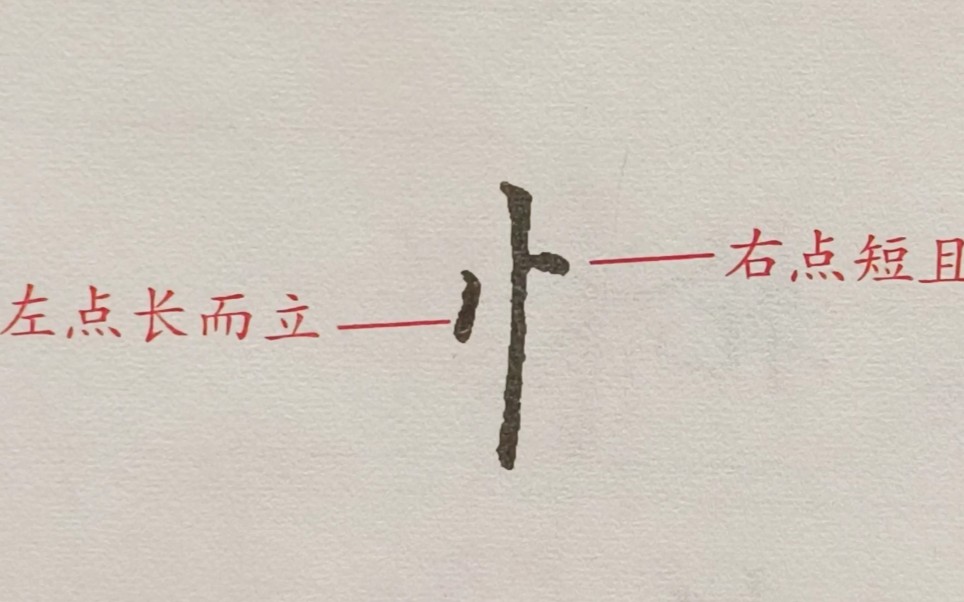 忄
右点短且
左点长而立